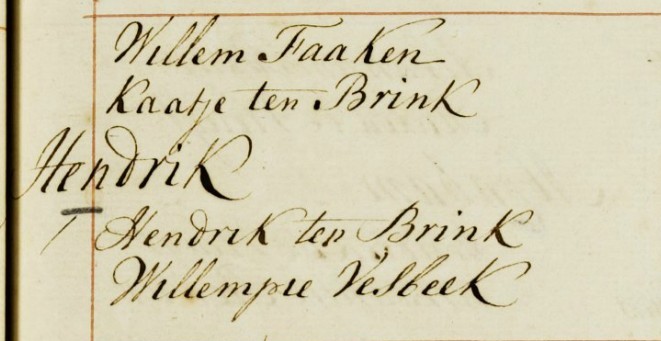 Willem Faaken
Kaatje ten Brink
Hendrik
Hendrik ten Brink
Willempie Vesbeek